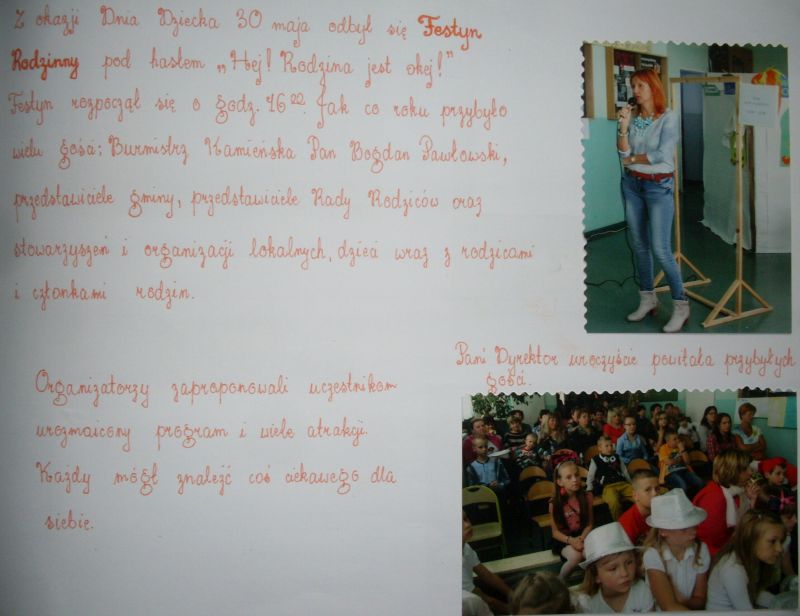 Z okazji Dnia Dziecka 30 maja odbył się Festyn
Rodzinny pod hasłem „Hej! Rodzina jest okej!"
Festyn rozpoczął się o godz. 16⁰⁰. Jak co roku przybyło
wielu gości: Burmistrz Kamieńska Pan Bogdan Pawłowski,
przedstawiciele gminy, przedstawiciele Rady Rodziców oraz
stowarzyszeń i organizacji lokalnych, dzieci wraz z rodzicami
i członkami rodzin.
Pani Dyrektor uroczyście powitała przybyłych
gości.
Organizatorzy zaproponowali uczestnikom
urozmaicony program i wiele atrakcji.
Każdy mógł znaleźć coś ciekawego dla
siebie.